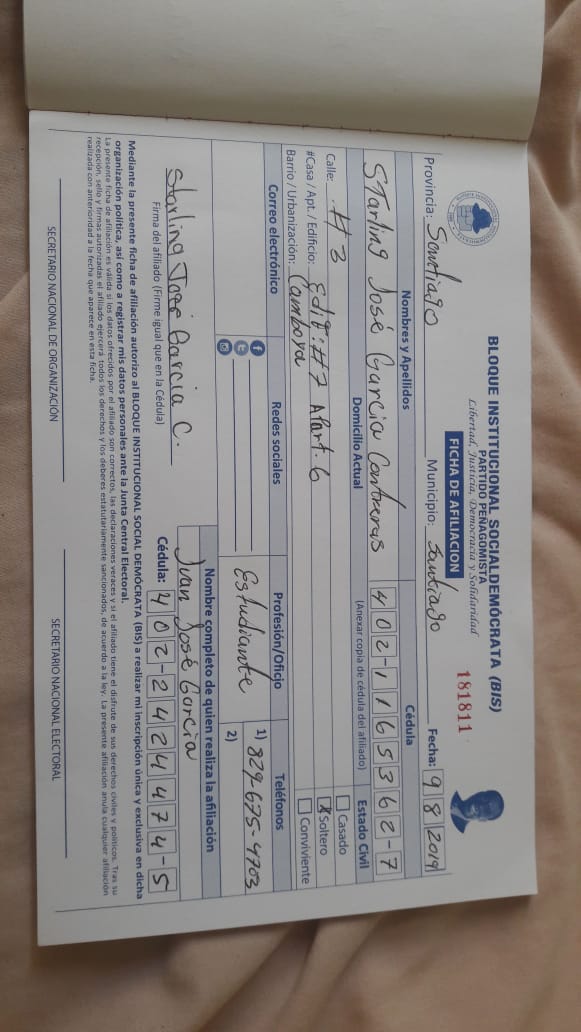 BLOQUE INSTITUCIONAL SOCIALDEMÓCRATA (BIS)
PARTIDO PEÑAGOMISTA
Libertad, Justicia, Democracia y Solidaridad
FICHA DE AFILIACION
181811
Provincia: Santiago Municipio: Santiago Fecha: 9 8 2019
Nombres y Apellidos Cédula
STarling José Garcia Contreras 402-1165362-7
Domicilio Actual (Anexar copia de cédula del afiliado) Estado Civil
Calle: #3 Casado
#Casa / Apt. / Edificio: Edif: #7 Apart. 6 X Soltero
Barrio / Urbanización: Camboya Conviviente
Correo electrónico Redes sociales Profesión/Oficio Teléfonos
Estudiante 1) 829-675-4703
2)
Nombre completo de quien realiza la afiliación
Starling José Garcia C. Juan José Garcia
Firma del afiliado (Firme igual que en la Cédula) Cédula: 402-2424474-5
Mediante la presente ficha de afiliación autorizo al BLOQUE INSTITUCIONAL SOCIAL DEMÓCRATA (BIS) a realizar mi inscripción única y exclusiva en dicha
organización política, así como a registrar mis datos personales ante la Junta Central Electoral.
La presente ficha de afiliación es válida si los datos ofrecidos por el afiliado son correctos, las declaraciones veraces y si el afiliado tiene el disfrute de sus derechos civiles y políticos. Tras su
recepción, sello y firmas autorizadas el afiliado ejercerá todos los derechos y los deberes estatutariamente sancionados, de acuerdo a la ley. La presente afiliación anula cualquier afiliación
realizada con anterioridad a la fecha que aparece en esta ficha.
SECRETARIO NACIONAL DE ORGANIZACIÓN SECRETARIO NACIONAL ELECTORAL